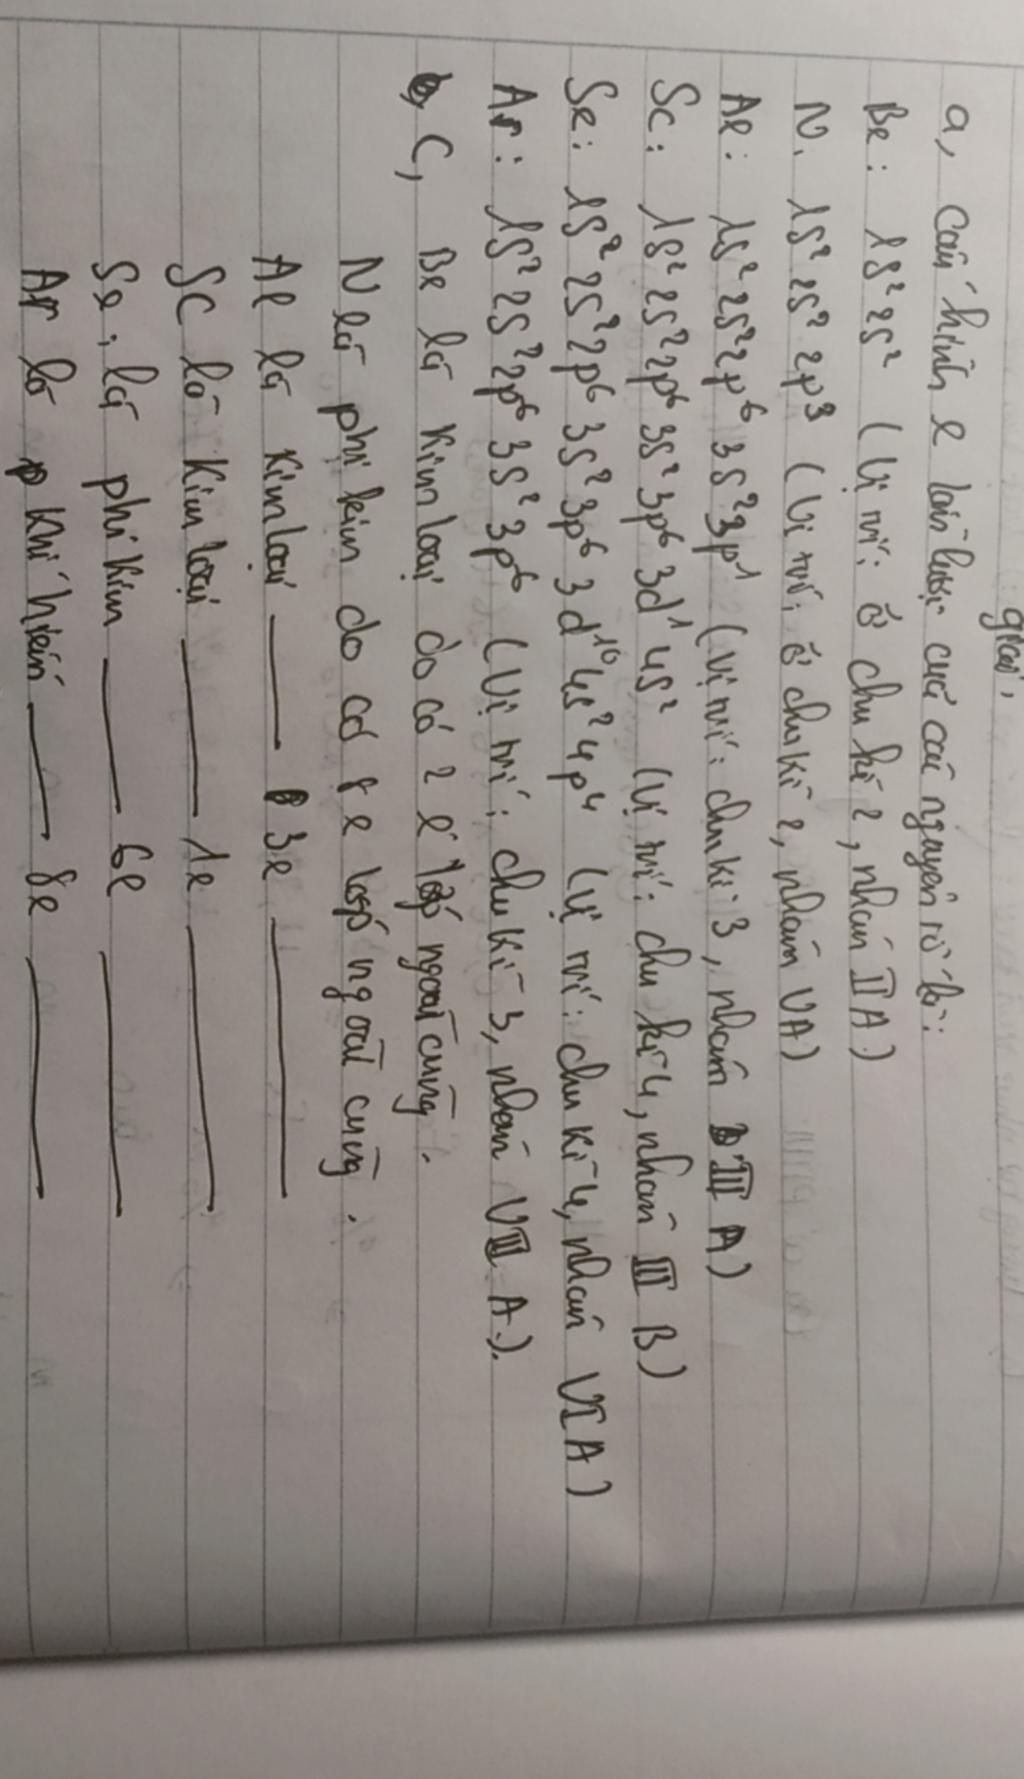 giải,
a, Cấu hình e lần lượt của các nguyên tử là:
Be: 1s² 2s² (Vị trí: ở chu kì 2, nhóm IIA)
N: 1s² 2s² 2p³ (Vị trí: ở chu kì 2, nhóm VA)
Al: 1s² 2s² 2p⁶ 3s² 3p¹ (Vị trí: chu kì 3, nhóm III A)
Sc: 1s² 2s² 2p⁶ 3s² 3p⁶ 3d¹ 4s² (Vị trí: chu kì 4, nhóm III B)
Se: 1s² 2s² 2p⁶ 3s² 3p⁶ 3d¹⁰ 4s² 4p⁴ (Vị trí: chu kì 4, nhóm VI A)
Ar: 1s² 2s² 2p⁶ 3s² 3p⁶ (Vị trí: chu kì 3, nhóm VIII A).
C, Be là kim loại do có 2 e lớp ngoài cùng.
N là phi kim do có 5 e lớp ngoài cùng.
Al là kim loại — 3e —
Sc là kim loại — 1e —
Se: là phi kim — 6e —
Ar là khí hiếm — 8e —